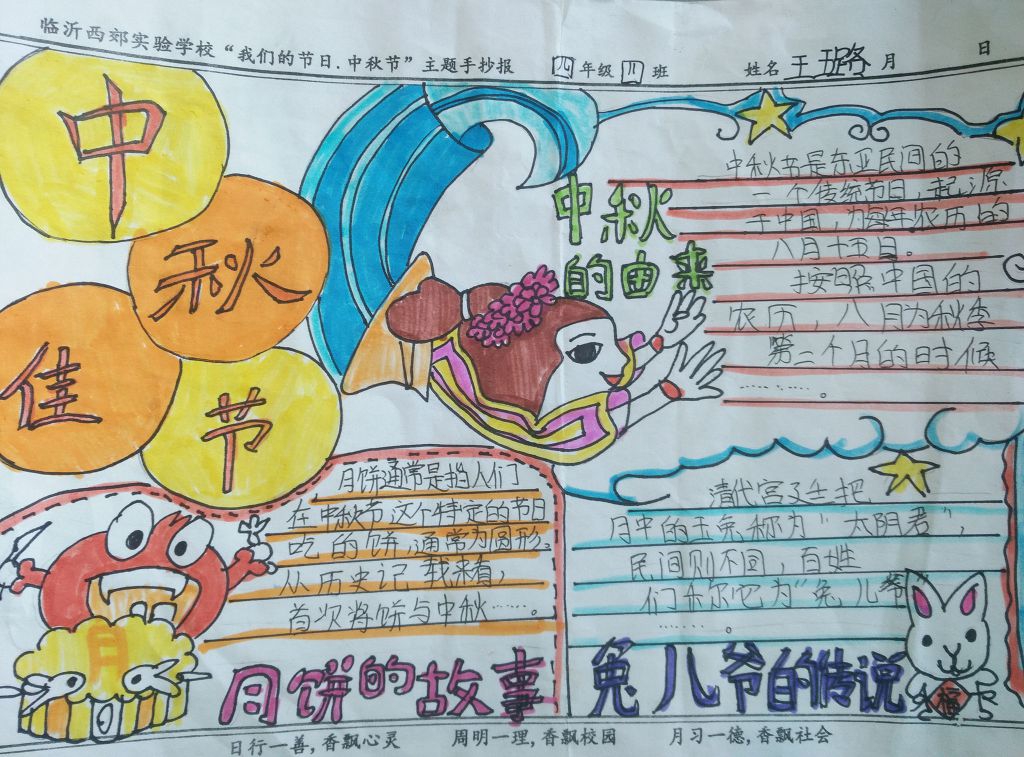 临沂西郊实验学校“我们的节日.中秋节”主题手抄报 四年级四班 姓名王璐 月 日
中
秋
佳
节
中秋
的由来
中秋节是东亚民间的
一个传统节日，起源
于中国，为每年农历的
八月十五日。
按照中国的
农历，八月为秋季
第二个月的时候
……。
月饼通常是指人们
在中秋节这个特定的节日
吃的饼，通常为圆形。
从历史记载来看，
首次将饼与中秋……。
月
月饼的故事
清代宫廷把
月中的玉兔称为“太阴君”，
民间则不同，百姓
们称它为“兔儿爷”
……。
兔儿爷的传说
福
日行一善,香飘心灵 周明一理,香飘校园 月习一德,香飘社会